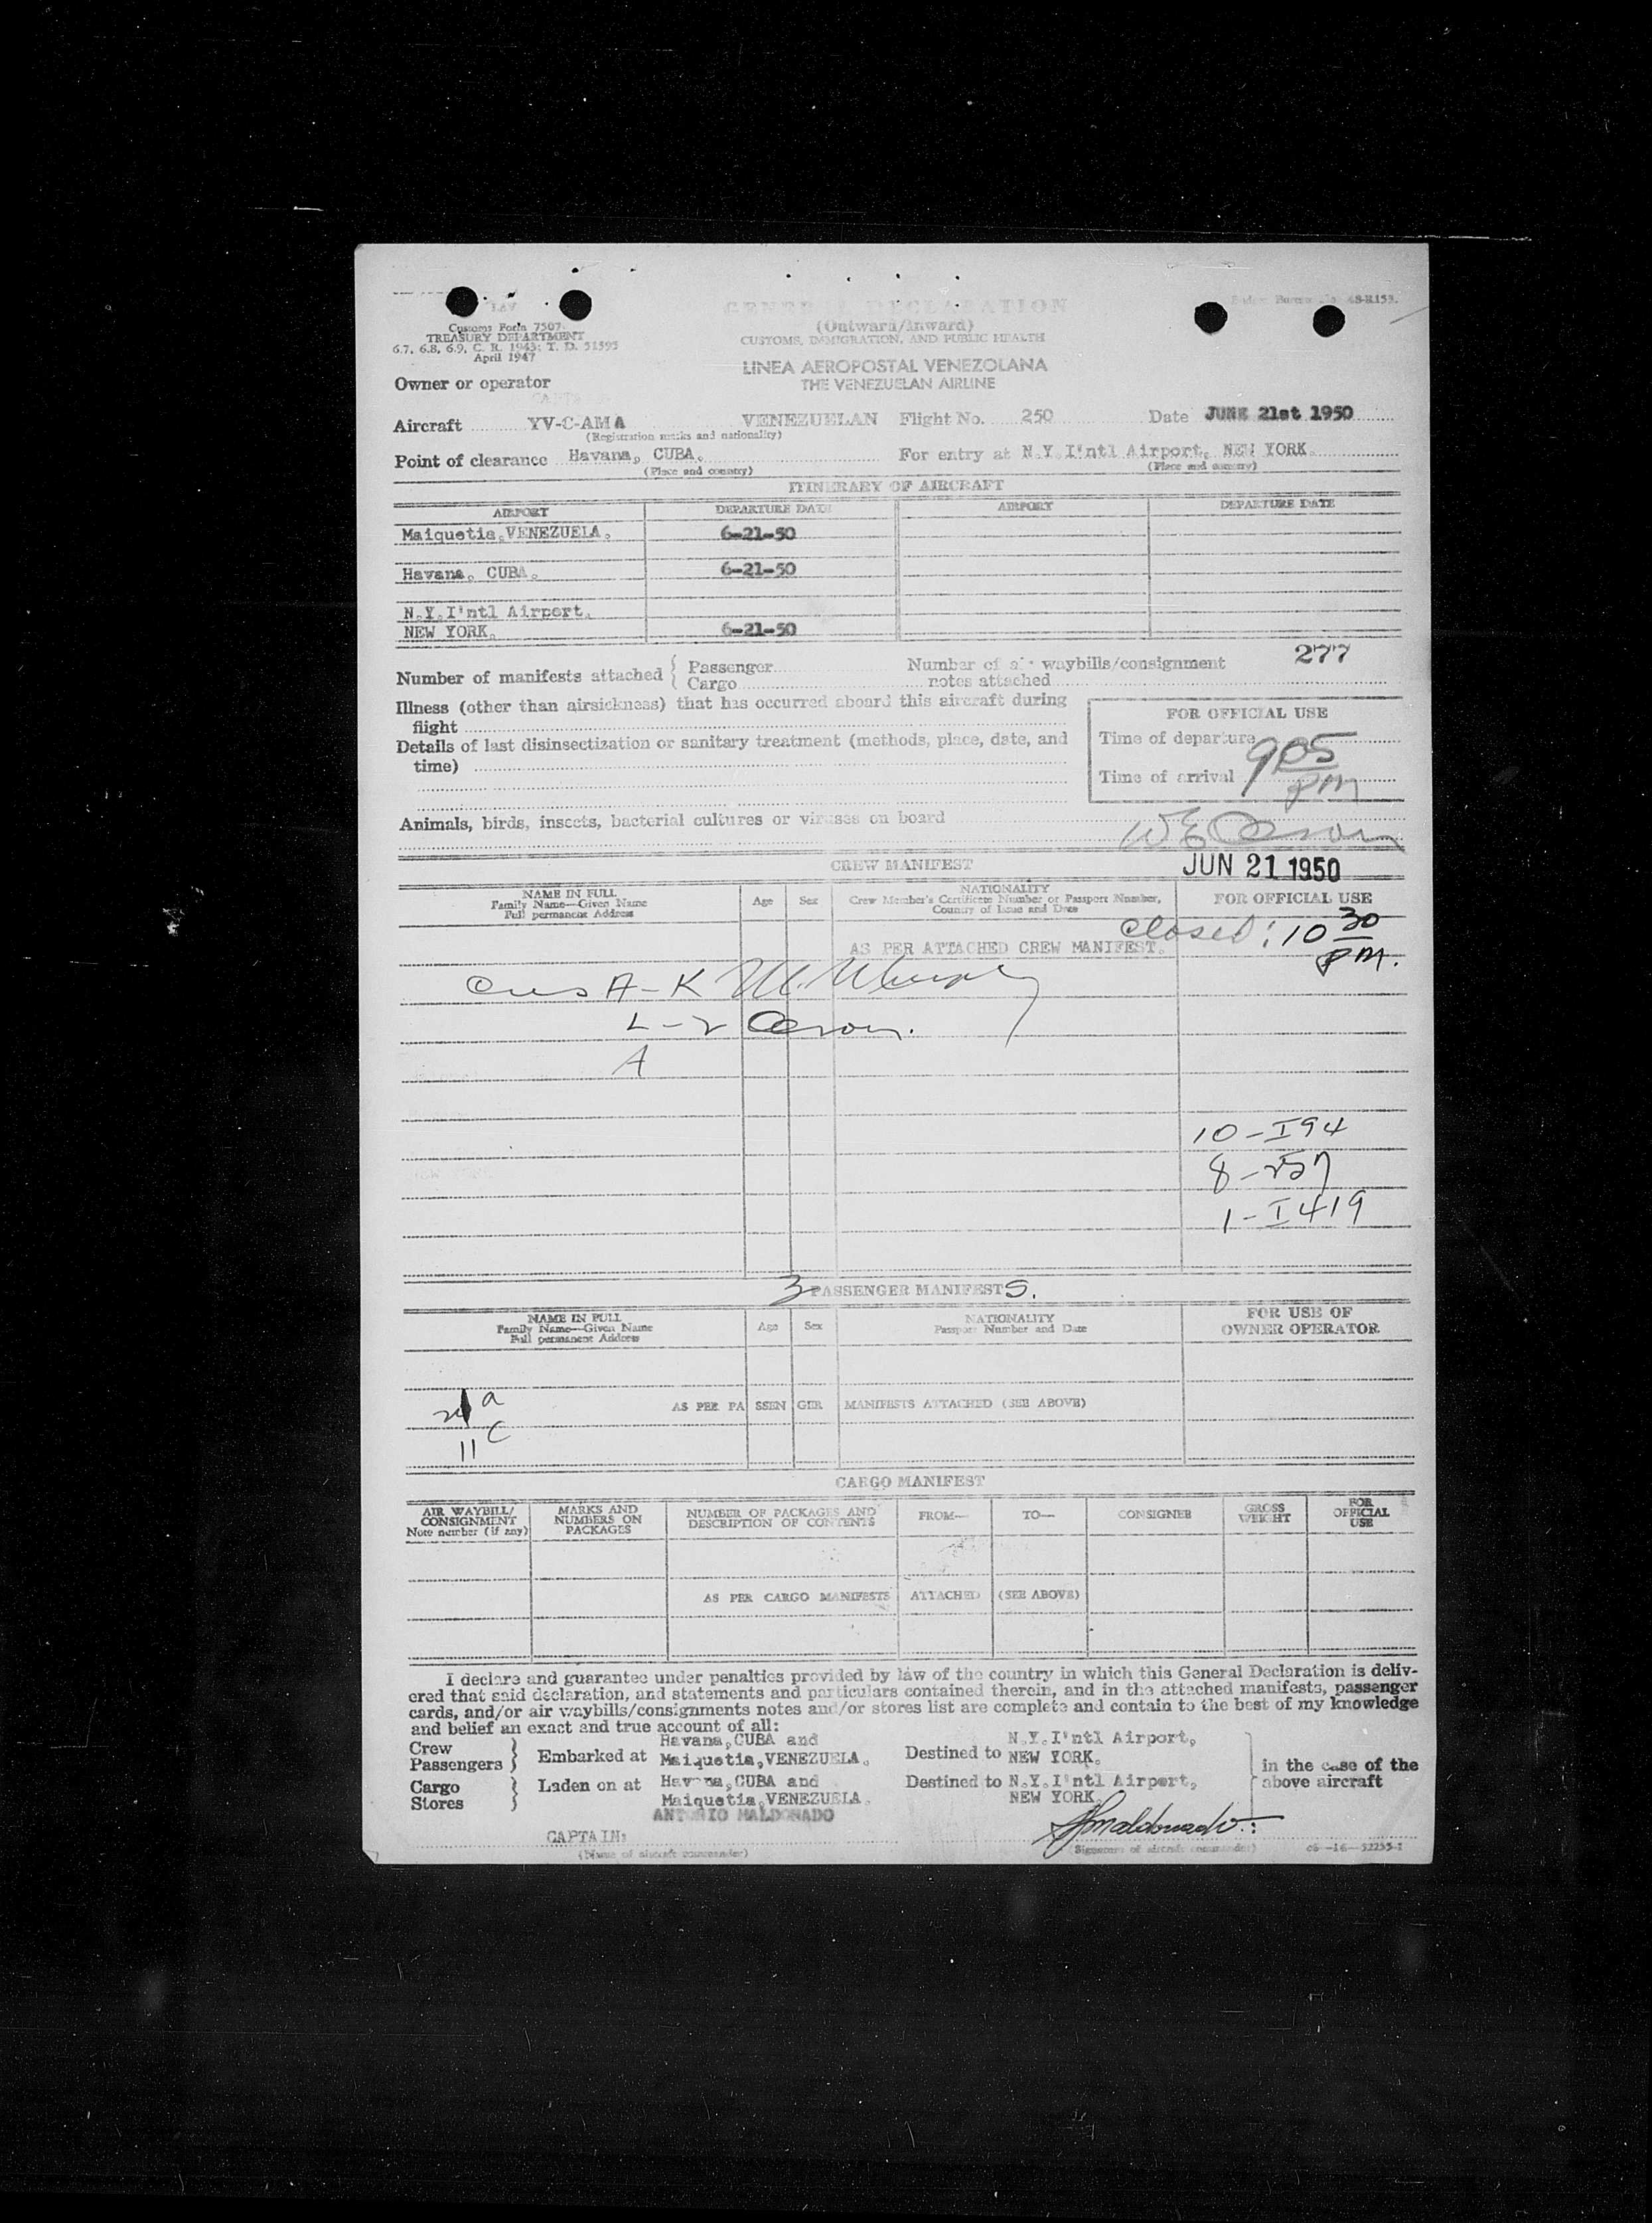 GENERAL DECLARATION
(Outward/Inward)
CUSTOMS, IMMIGRATION, AND PUBLIC HEALTH
48-R153.
Customs Form 7507
TREASURY DEPARTMENT
6.7, 6.8, 6.9, C. R. 1943; T. D. 51595
April 1947
LINEA AEROPOSTAL VENEZOLANA
THE VENEZUELAN AIRLINE
Owner or operator
Aircraft YV-C-AMA VENEZUELAN Flight No. 250 Date JUNE 21st 1950
(Registration marks and nationality)
Point of clearance Havana, CUBA. For entry at N.Y.I'ntl Airport, NEW YORK.
(Place and country) (Place and country)
ITINERARY OF AIRCRAFT
AIRPORT DEPARTURE DATE AIRPORT DEPARTURE DATE
Maiquetia,VENEZUELA. 6-21-50
Havana, CUBA. 6-21-50
N.Y.I'ntl Airport,
NEW YORK. 6-21-50
Number of manifests attached { Passenger
Cargo
Number of air waybills/consignment
notes attached 277
Illness (other than airsickness) that has occurred aboard this aircraft during
flight
Details of last disinsectization or sanitary treatment (methods, place, date, and
time)
FOR OFFICIAL USE
Time of departure
Time of arrival 905
PM
Animals, birds, insects, bacterial cultures or viruses on board
CREW MANIFEST JUN 21 1950
NAME IN FULL
Family Name—Given Name
Full permanent Address
Age Sex
NATIONALITY
Crew Member's Certificate Number or Passport Number,
Country of Issue and Date
FOR OFFICIAL USE
closed: 10 30
PM.
AS PER ATTACHED CREW MANIFEST.
A-K
A
10-I94
8-257
1-I419
3 PASSENGER MANIFESTS.
NAME IN FULL
Family Name—Given Name
Full permanent Address
Age Sex
NATIONALITY
Passport Number and Date
FOR USE OF
OWNER OPERATOR
AS PER PASSENGER MANIFESTS ATTACHED (SEE ABOVE)
11 c
CARGO MANIFEST
AIR WAYBILL/
CONSIGNMENT
Note number (if any)
MARKS AND
NUMBERS ON
PACKAGES
NUMBER OF PACKAGES AND
DESCRIPTION OF CONTENTS
FROM— TO— CONSIGNEE
GROSS
WEIGHT
FOR
OFFICIAL
USE
AS PER CARGO MANIFESTS ATTACHED (SEE ABOVE)
I declare and guarantee under penalties provided by law of the country in which this General Declaration is deliv-
ered that said declaration, and statements and particulars contained therein, and in the attached manifests, passenger
cards, and/or air waybills/consignments notes and/or stores list are complete and contain to the best of my knowledge
and belief an exact and true account of all:
Crew
Passengers } Embarked at Havana,CUBA and
Maiquetia,VENEZUELA. Destined to N.Y.I'ntl Airport,
NEW YORK.
Cargo
Stores } Laden on at Havana,CUBA and
Maiquetia,VENEZUELA. Destined to N.Y.I'ntl Airport,
NEW YORK.
in the case of the
above aircraft
ANTONIO MALDONADO
CAPTAIN:
(Name of aircraft commander)
AMaldonado
(Signature of aircraft commander)
c6-16-52255-1